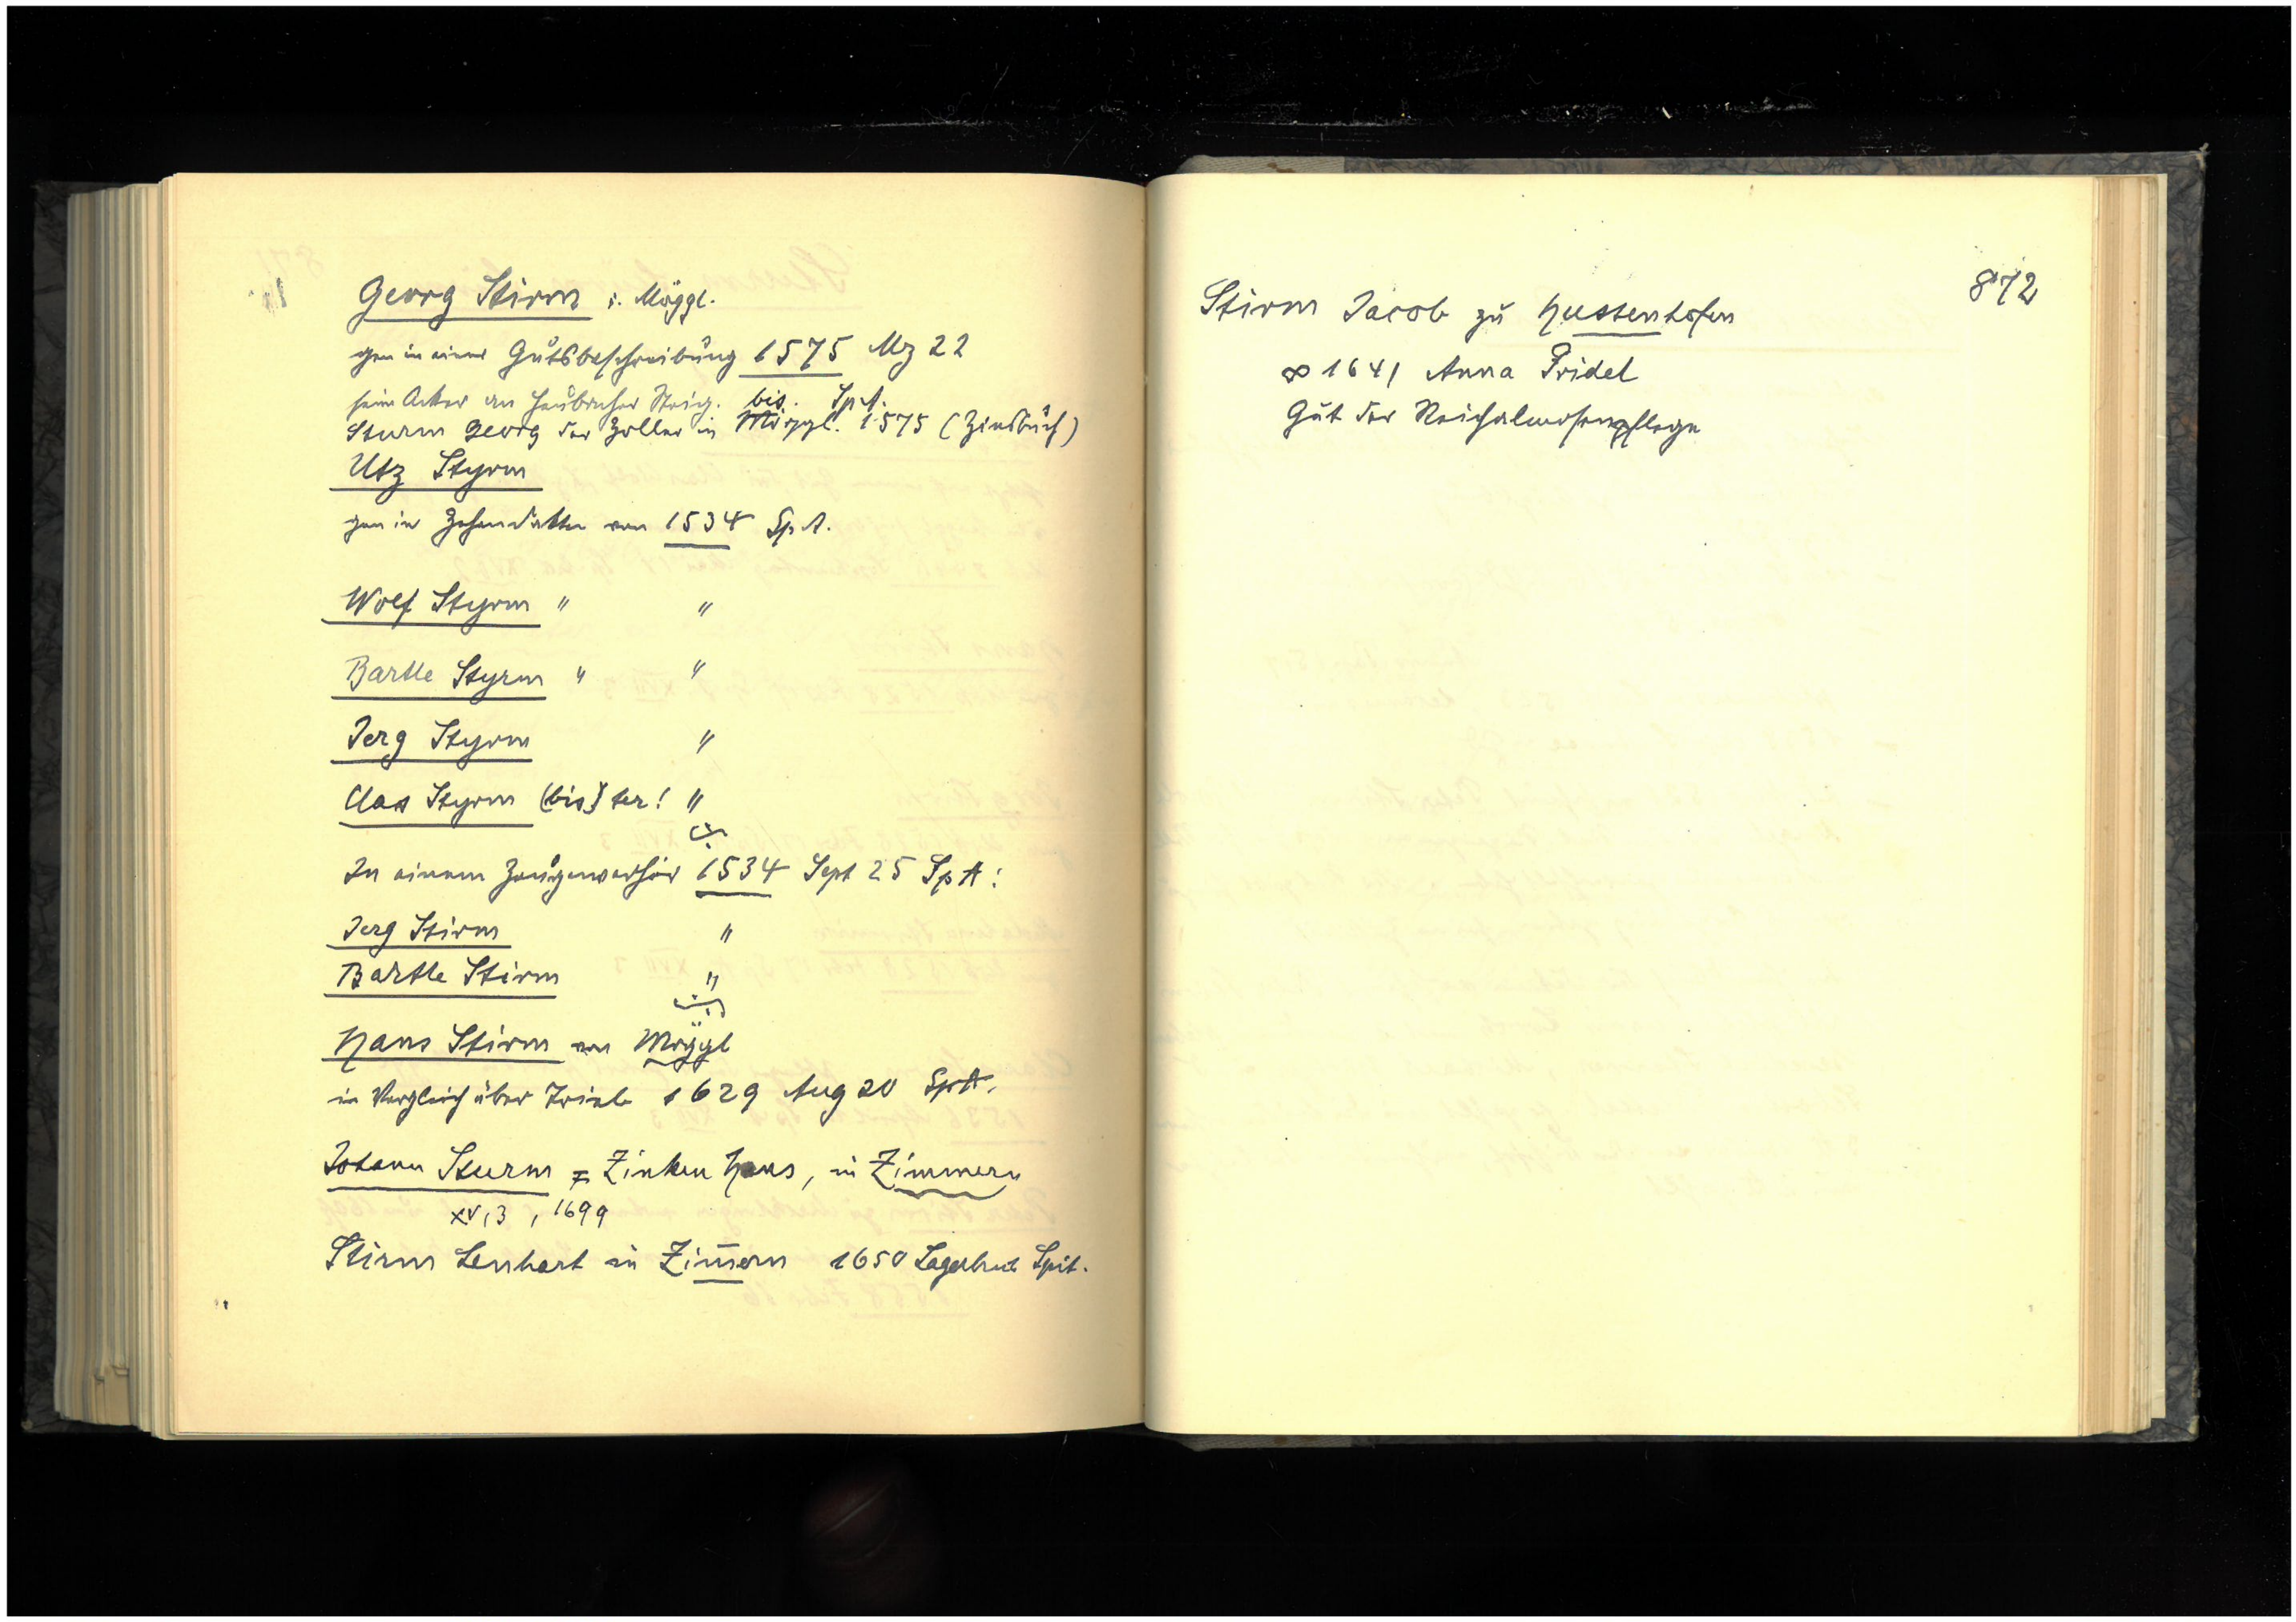 Georg Stirm i. Möggl.
gen in einer Gutsbeschreibung 1575 Mz 22
sein Acker an Heubacher Steig. bis. Sp.A.
Sturm Georg der Zoller in Möggl. 1575 (Zinsbuch)
Utz Styrm
gen in Zehendakten von 1534 Sp.A.
Wolf Styrm " "
Bartle Styrm " "
Jerg Styrm "
Clas Styrm (bis) ter! "
In einem Zeugenverhör 1534 Sept 25 SpA:
Jerg Stirm "
Bartle Stirm "
Hans Stirm von Möggl
in Vergleich über Trieb 1629 Aug 20 SpA.
Johann Sturm = Zinken Hans, in Zimmern
XV,3, 1699
Stirm Lenhart in Zim̄ern 1650 Lagerbuch Spit.
872
Stirm Jacob zu Hussenhofen
∞ 1641 Anna Fridel
Gut der Reichalmosenpflege